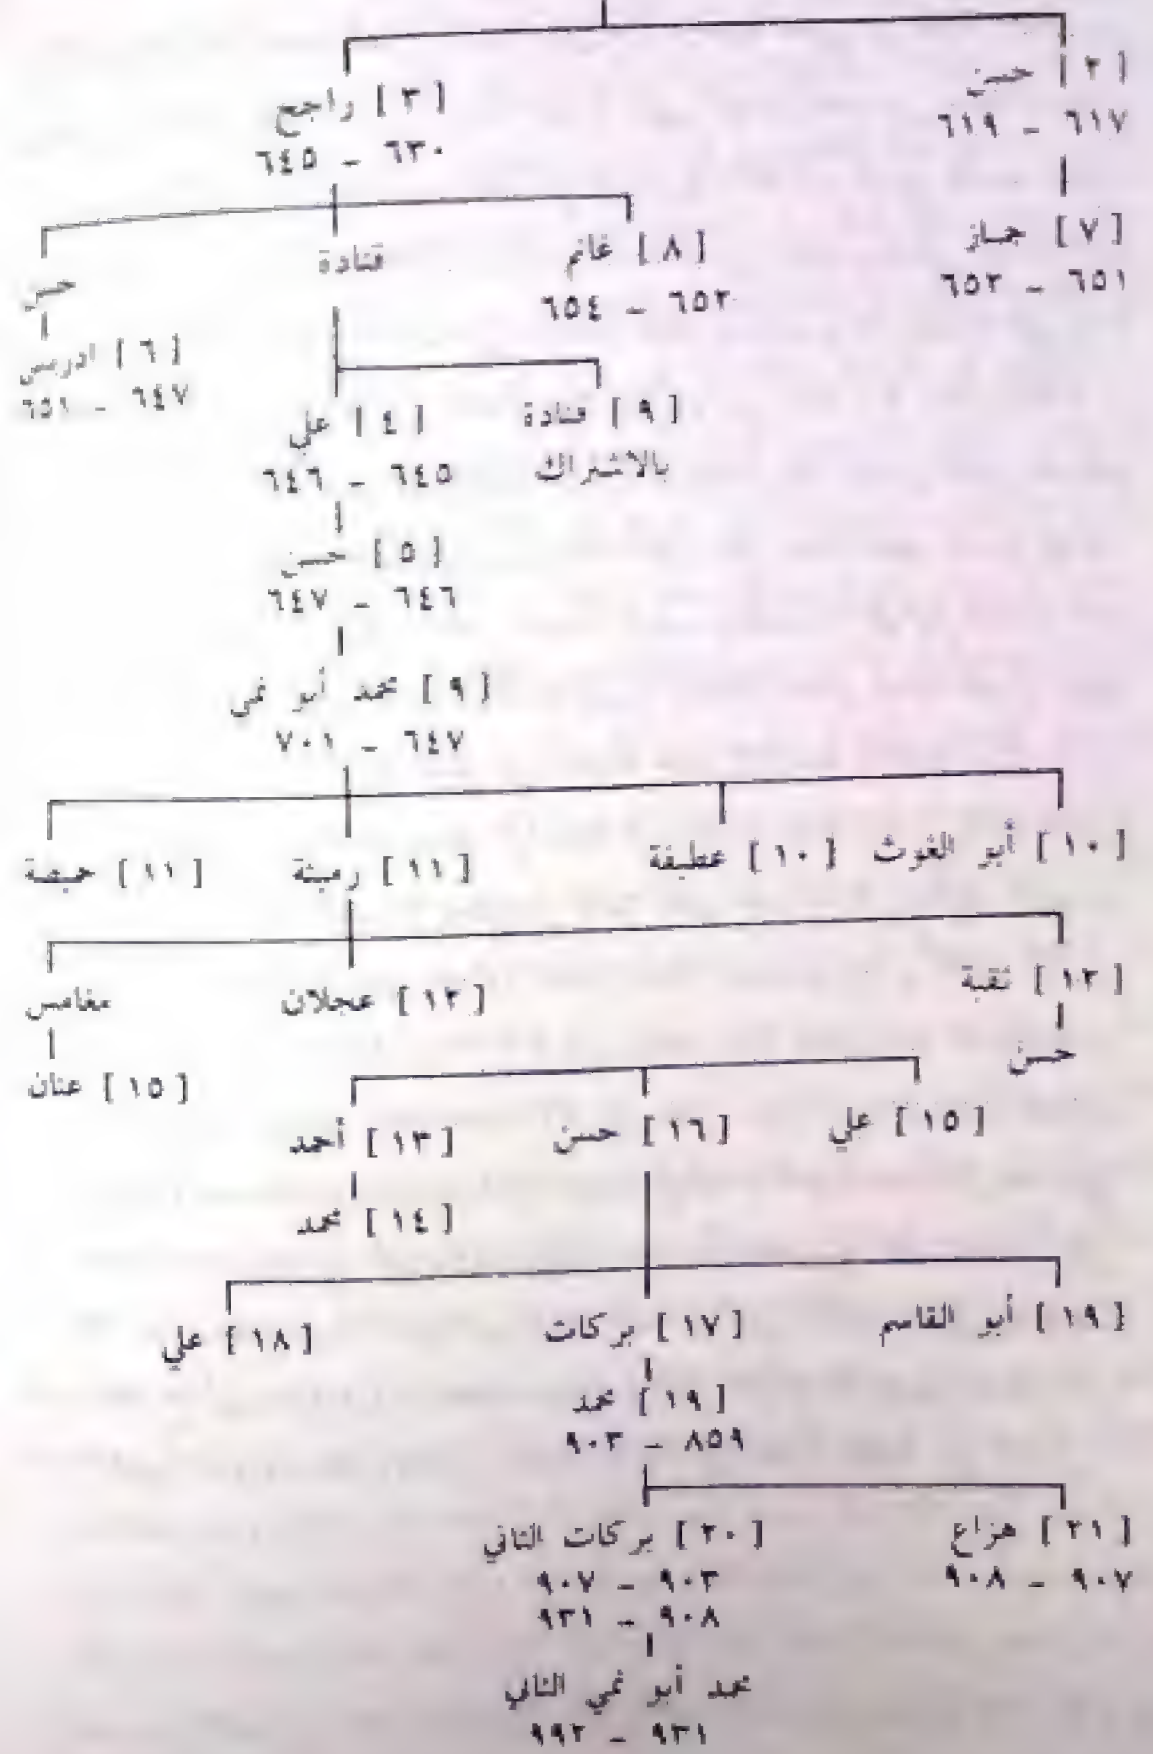 [ ٢ ] حسن
٦١٧ - ٦١٩
[ ٣ ] راجح
٦٣٠ - ٦٤٥
[ ٧ ] جماز
٦٥١ - ٦٥٢
[ ٨ ] غانم
٦٥٢ - ٦٥٤
قتادة
حسن
[ ٦ ] ادريس
٦٤٧ - ٦٥١
[ ٩ ] قتادة
بالاشتراك
[ ٤ ] علي
٦٤٥ - ٦٤٦
[ ٥ ] حسن
٦٤٦ - ٦٤٧
[ ٩ ] محمد أبو نمي
٦٤٧ - ٧٠١
[ ١٠ ] أبو الغوث
[ ١٠ ] عطيفة
[ ١١ ] رميثة
[ ١١ ] حميضة
[ ١٢ ] ثقبة
[ ١٢ ] عجلان
مغامس
حسن
[ ١٥ ] عنان
[ ١٥ ] علي
[ ١٦ ] حسن
[ ١٣ ] أحمد
[ ١٤ ] محمد
[ ١٩ ] أبو القاسم
[ ١٧ ] بركات
[ ١٨ ] علي
[ ١٩ ] محمد
٨٥٩ - ٩٠٣
[ ٢١ ] هزاع
٩٠٧ - ٩٠٨
[ ٢٠ ] بركات الثاني
٩٠٣ - ٩٠٧
٩٠٨ - ٩٣١
محمد أبو نمي الثاني
٩٣١ - ٩٩٢